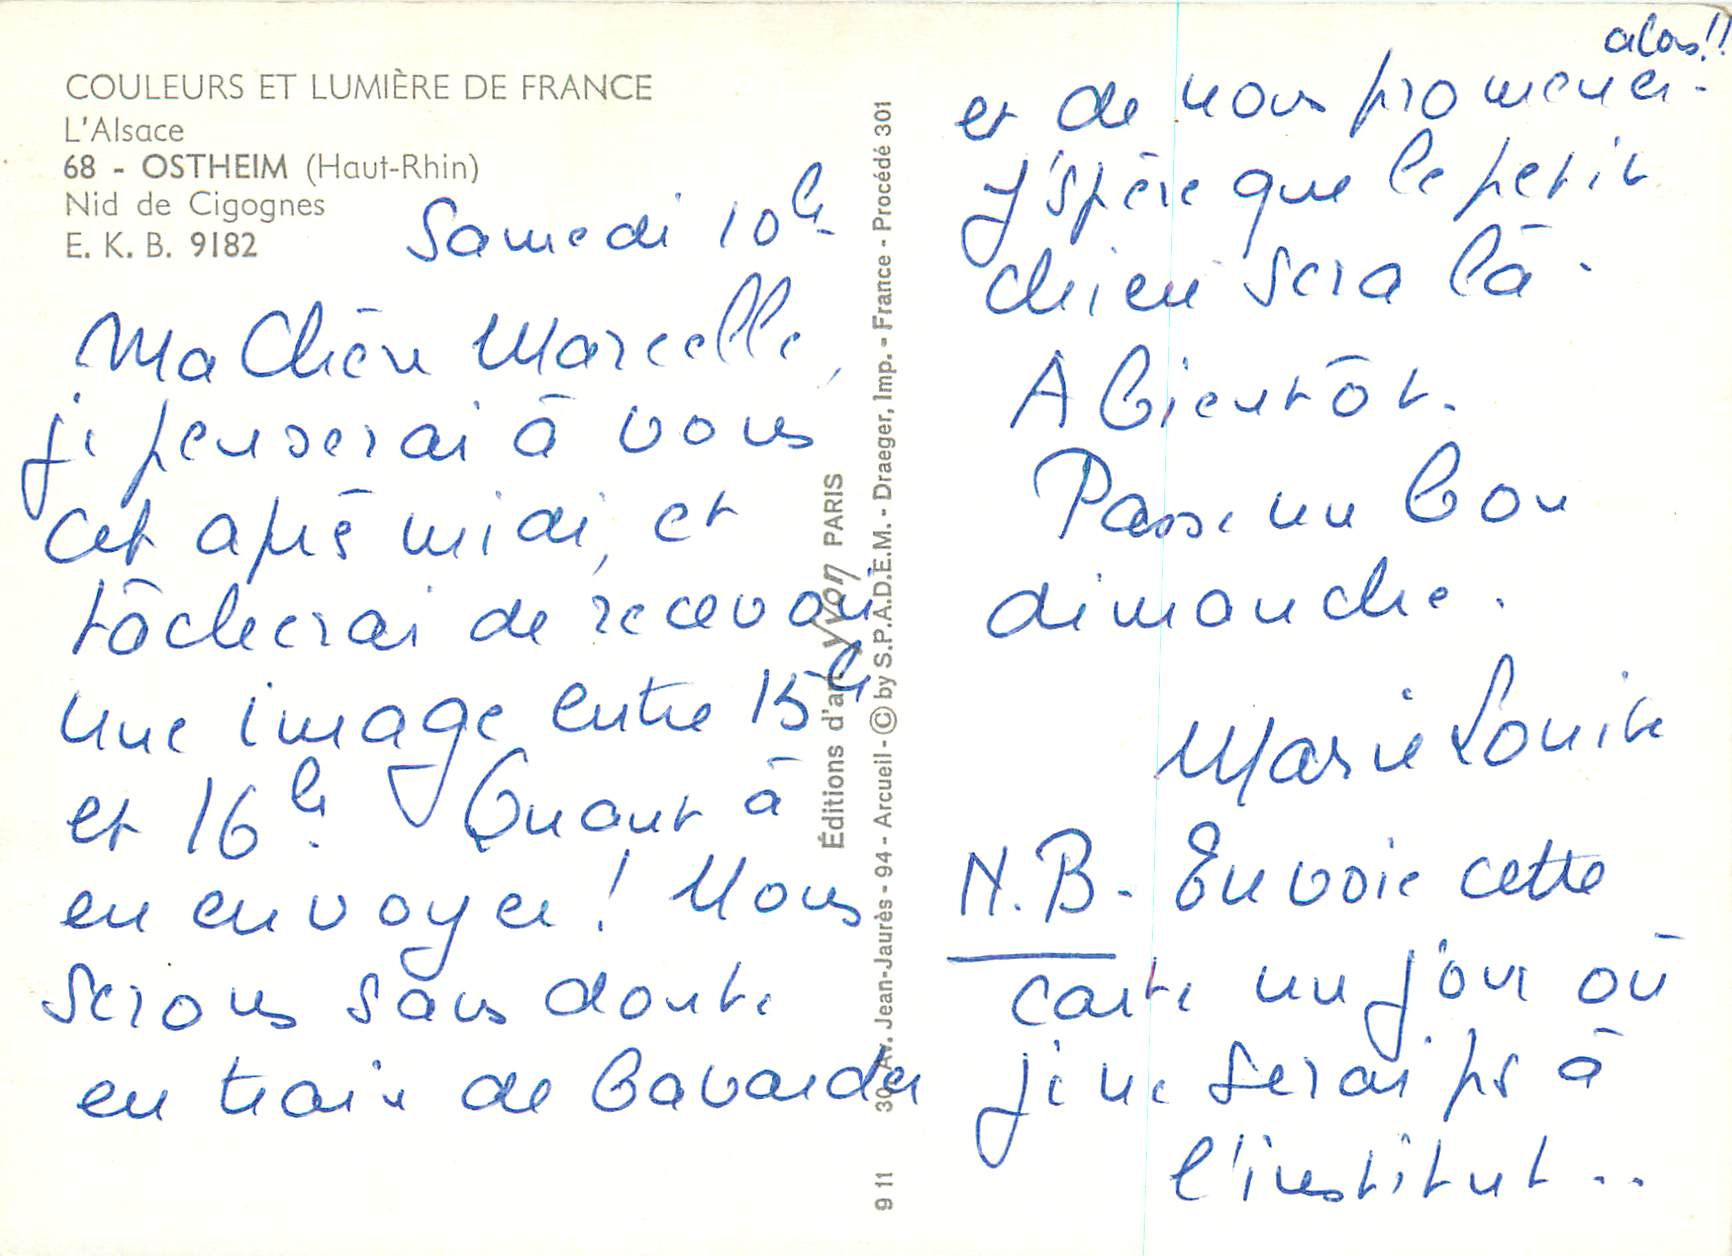 COULEURS ET LUMIÈRE DE FRANCE
L'Alsace
68 - OSTHEIM (Haut-Rhin)
Nid de Cigognes
E. K. B. 9182
Samedi 10h
Ma Chère Marcelle,
je penserai à vous
cet après midi, et
tâcherai de recevoir
une image entre 15h
et 16h. Quant à
en envoyer ! Nous
serons sans doute
en train de bavarder
Éditions d'art Yvon PARIS
30, Av. Jean-Jaurès - 94 - Arcueil - © by S.P.A.D.E.M. - Draeger, Imp. - France - Procédé 301
9 11
alors!!
et de nous promener.
J'spère que le petit
chien sera là.
A bientôt.
Passe un bon
dimanche.
Marie Louise
N.B- Envoie cette
carte un jour où
je ne serai ps à
l'institut..